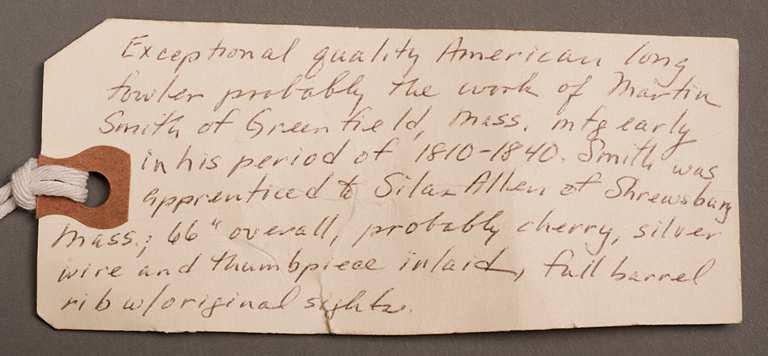 Exceptional quality American long
fowler probably the work of Martin
Smith of Greenfield, Mass. mfg early
in his period of 1810-1840. Smith was
apprenticed to Silas Allen of Shrewsbury
Mass.; 66" overall, probably cherry, silver
wire and thumbpiece inlaid, full barrel
rib w/original sights.